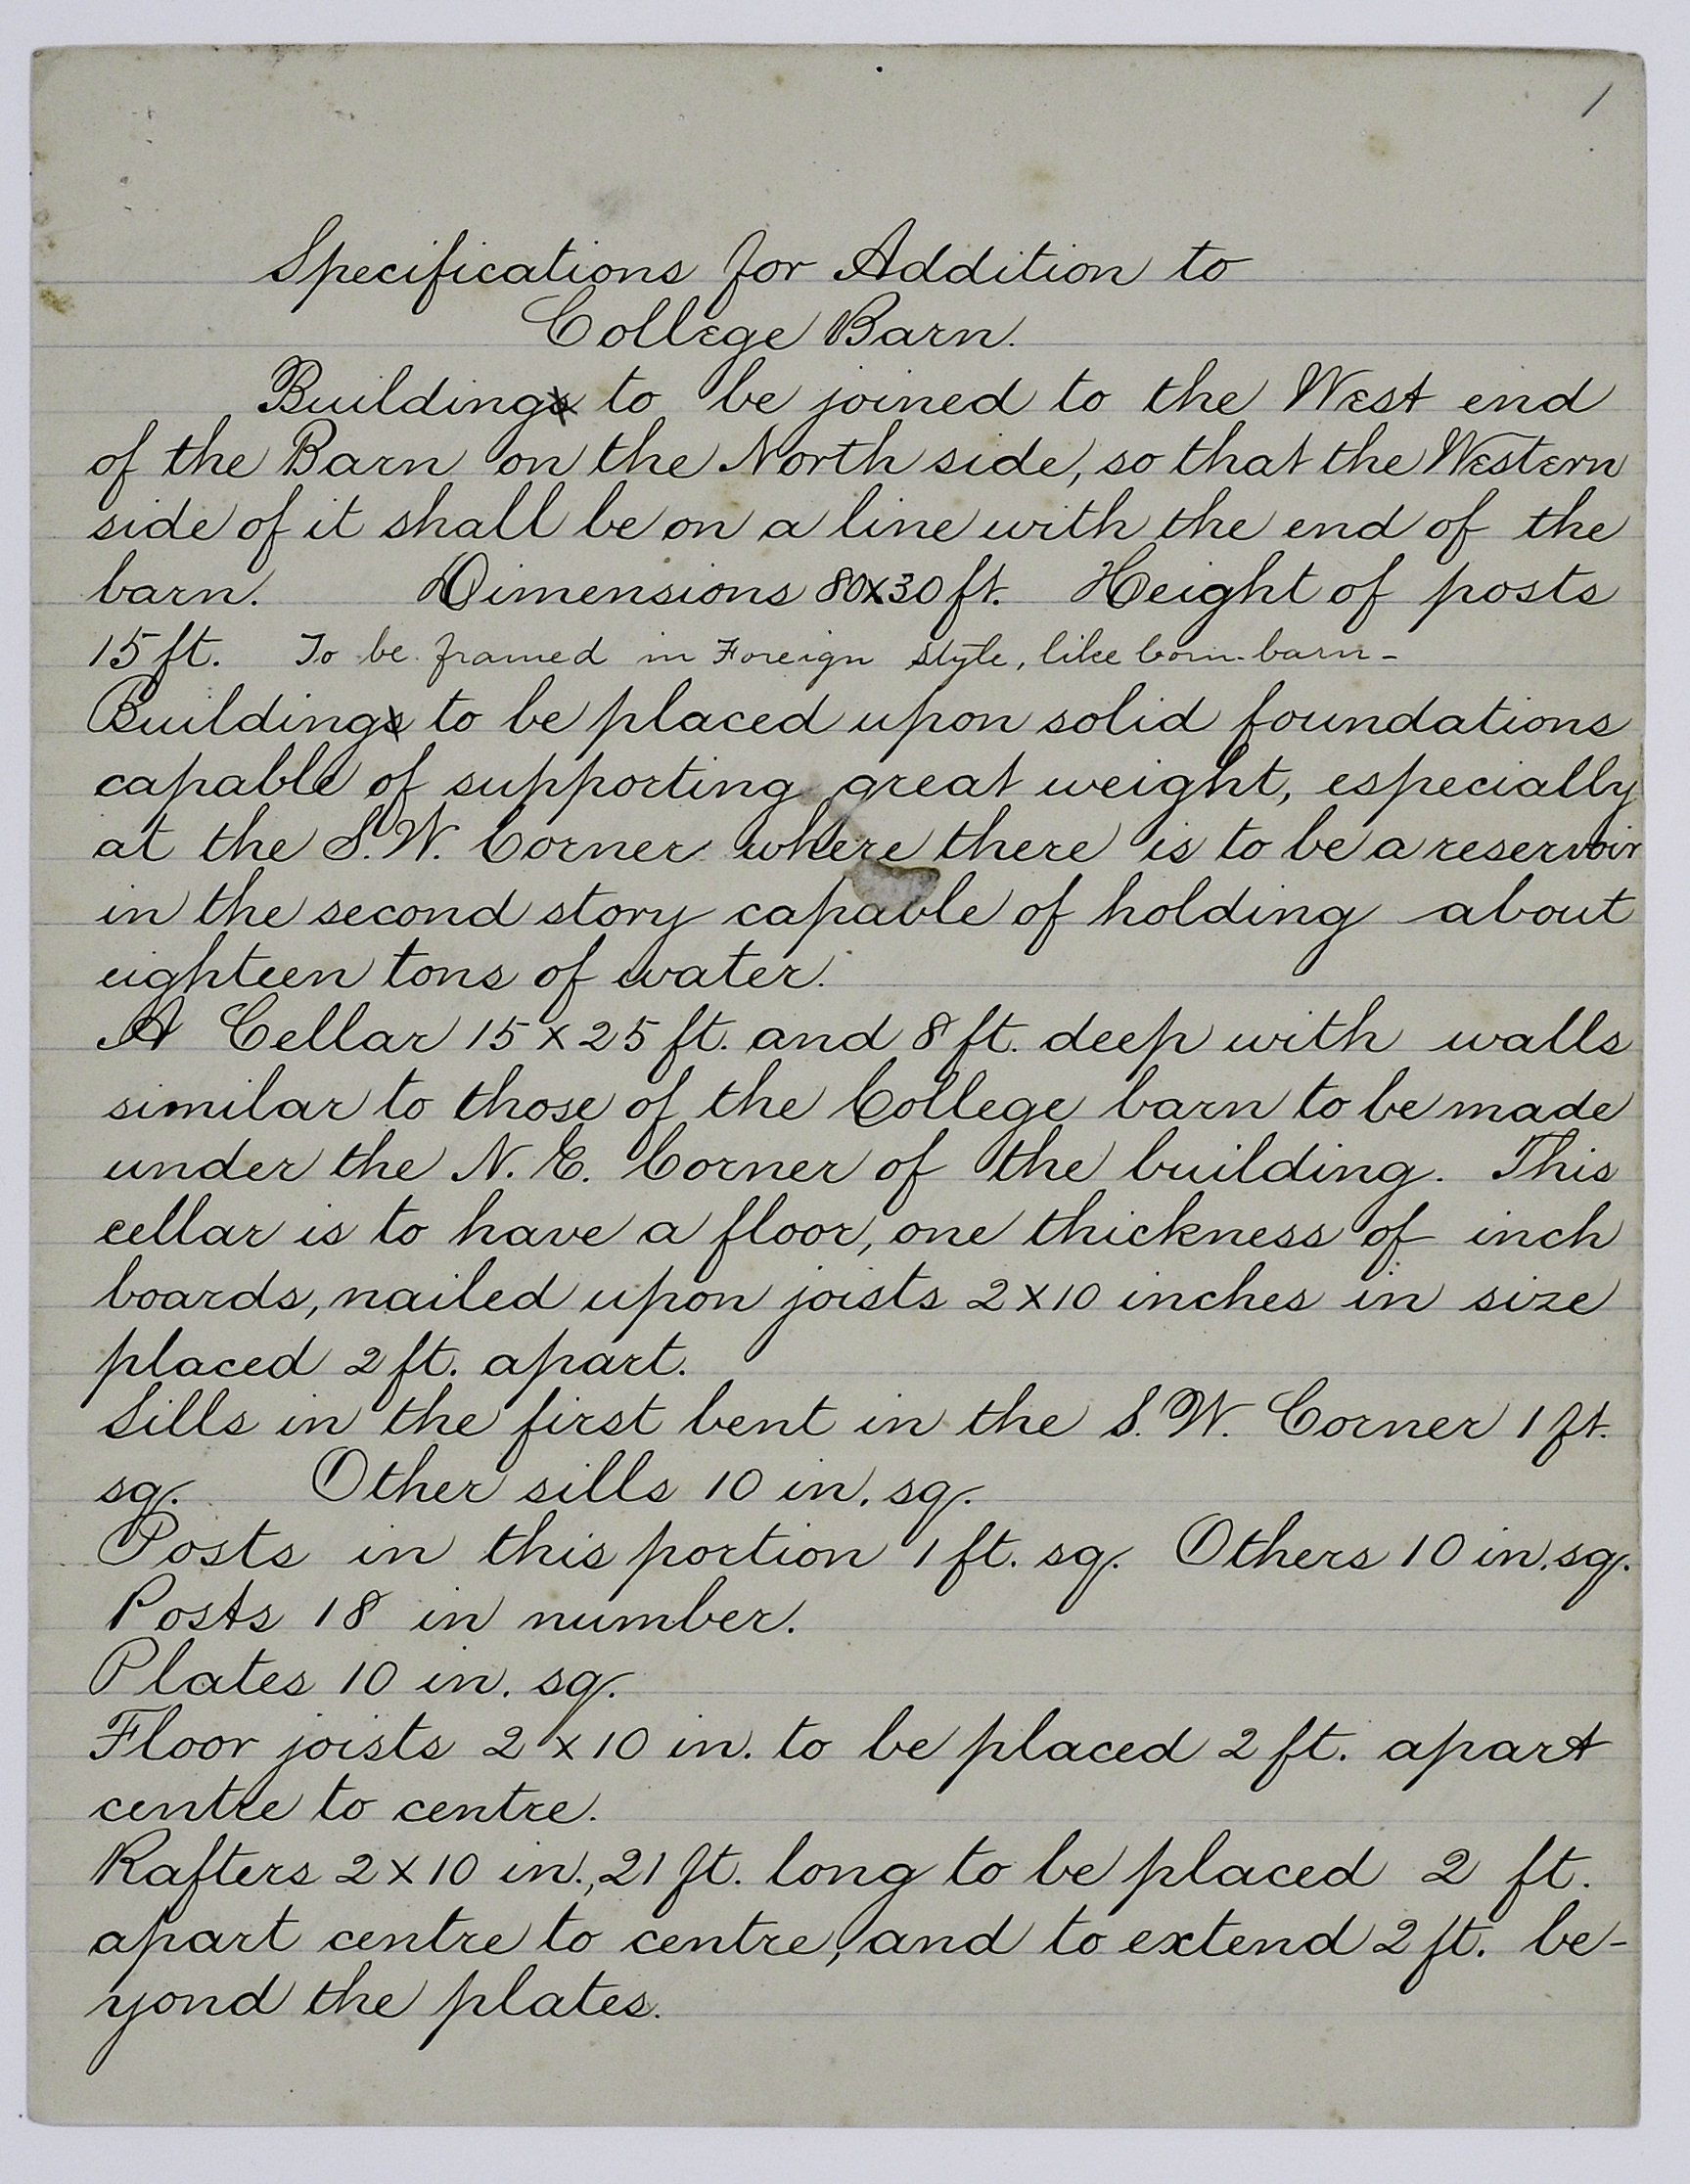 1
Specifications for Addition to
College Barn.
Building to be joined to the West end
of the Barn on the North side, so that the Western
side of it shall be on a line with the end of the
barn. Dimensions 80x30 ft. Height of posts
15 ft. To be framed in Foreign style, like barn-
Building to be placed upon solid foundations
capable of supporting great weight, especially
at the S.W. Corner where there is to be a reservoir
in the second story capable of holding about
eighteen tons of water.
A Cellar 15 x 25 ft. and 8 ft. deep with walls
similar to those of the College barn to be made
under the N. E. Corner of the building. This
cellar is to have a floor, one thickness of inch
boards, nailed upon joists 2 x 10 inches in size
placed 2 ft. apart.
Sills in the first bent in the S. W. Corner 1 ft.
sq. Other sills 10 in. sq.
Posts in this portion 1 ft. sq. Others 10 in. sq.
Posts 18 in number.
Plates 10 in. sq.
Floor joists 2 x 10 in. to be placed 2 ft. apart
centre to centre.
Rafters 2 x 10 in., 21 ft. long to be placed 2 ft.
apart centre to centre, and to extend 2 ft. be-
yond the plates.